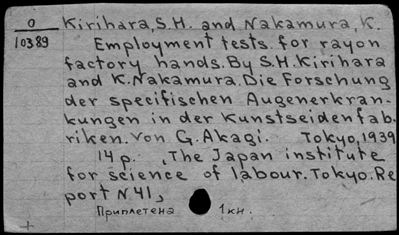 O
10389
Kirihara, S.H. and Nakamura, K.
Employment tests for rayon
factory hands. By S.H. Kirihara
and K. Nakamura. Die Forschung
der specifischen Augenerkran-
kungen in der Kunstseidenfab-
riken. Von G. Akagi. Tokyo, 1939
14 p. , The Japan institute
for science of labour. Tokyo. Re
port N 41,
Приплетена 1 кн.